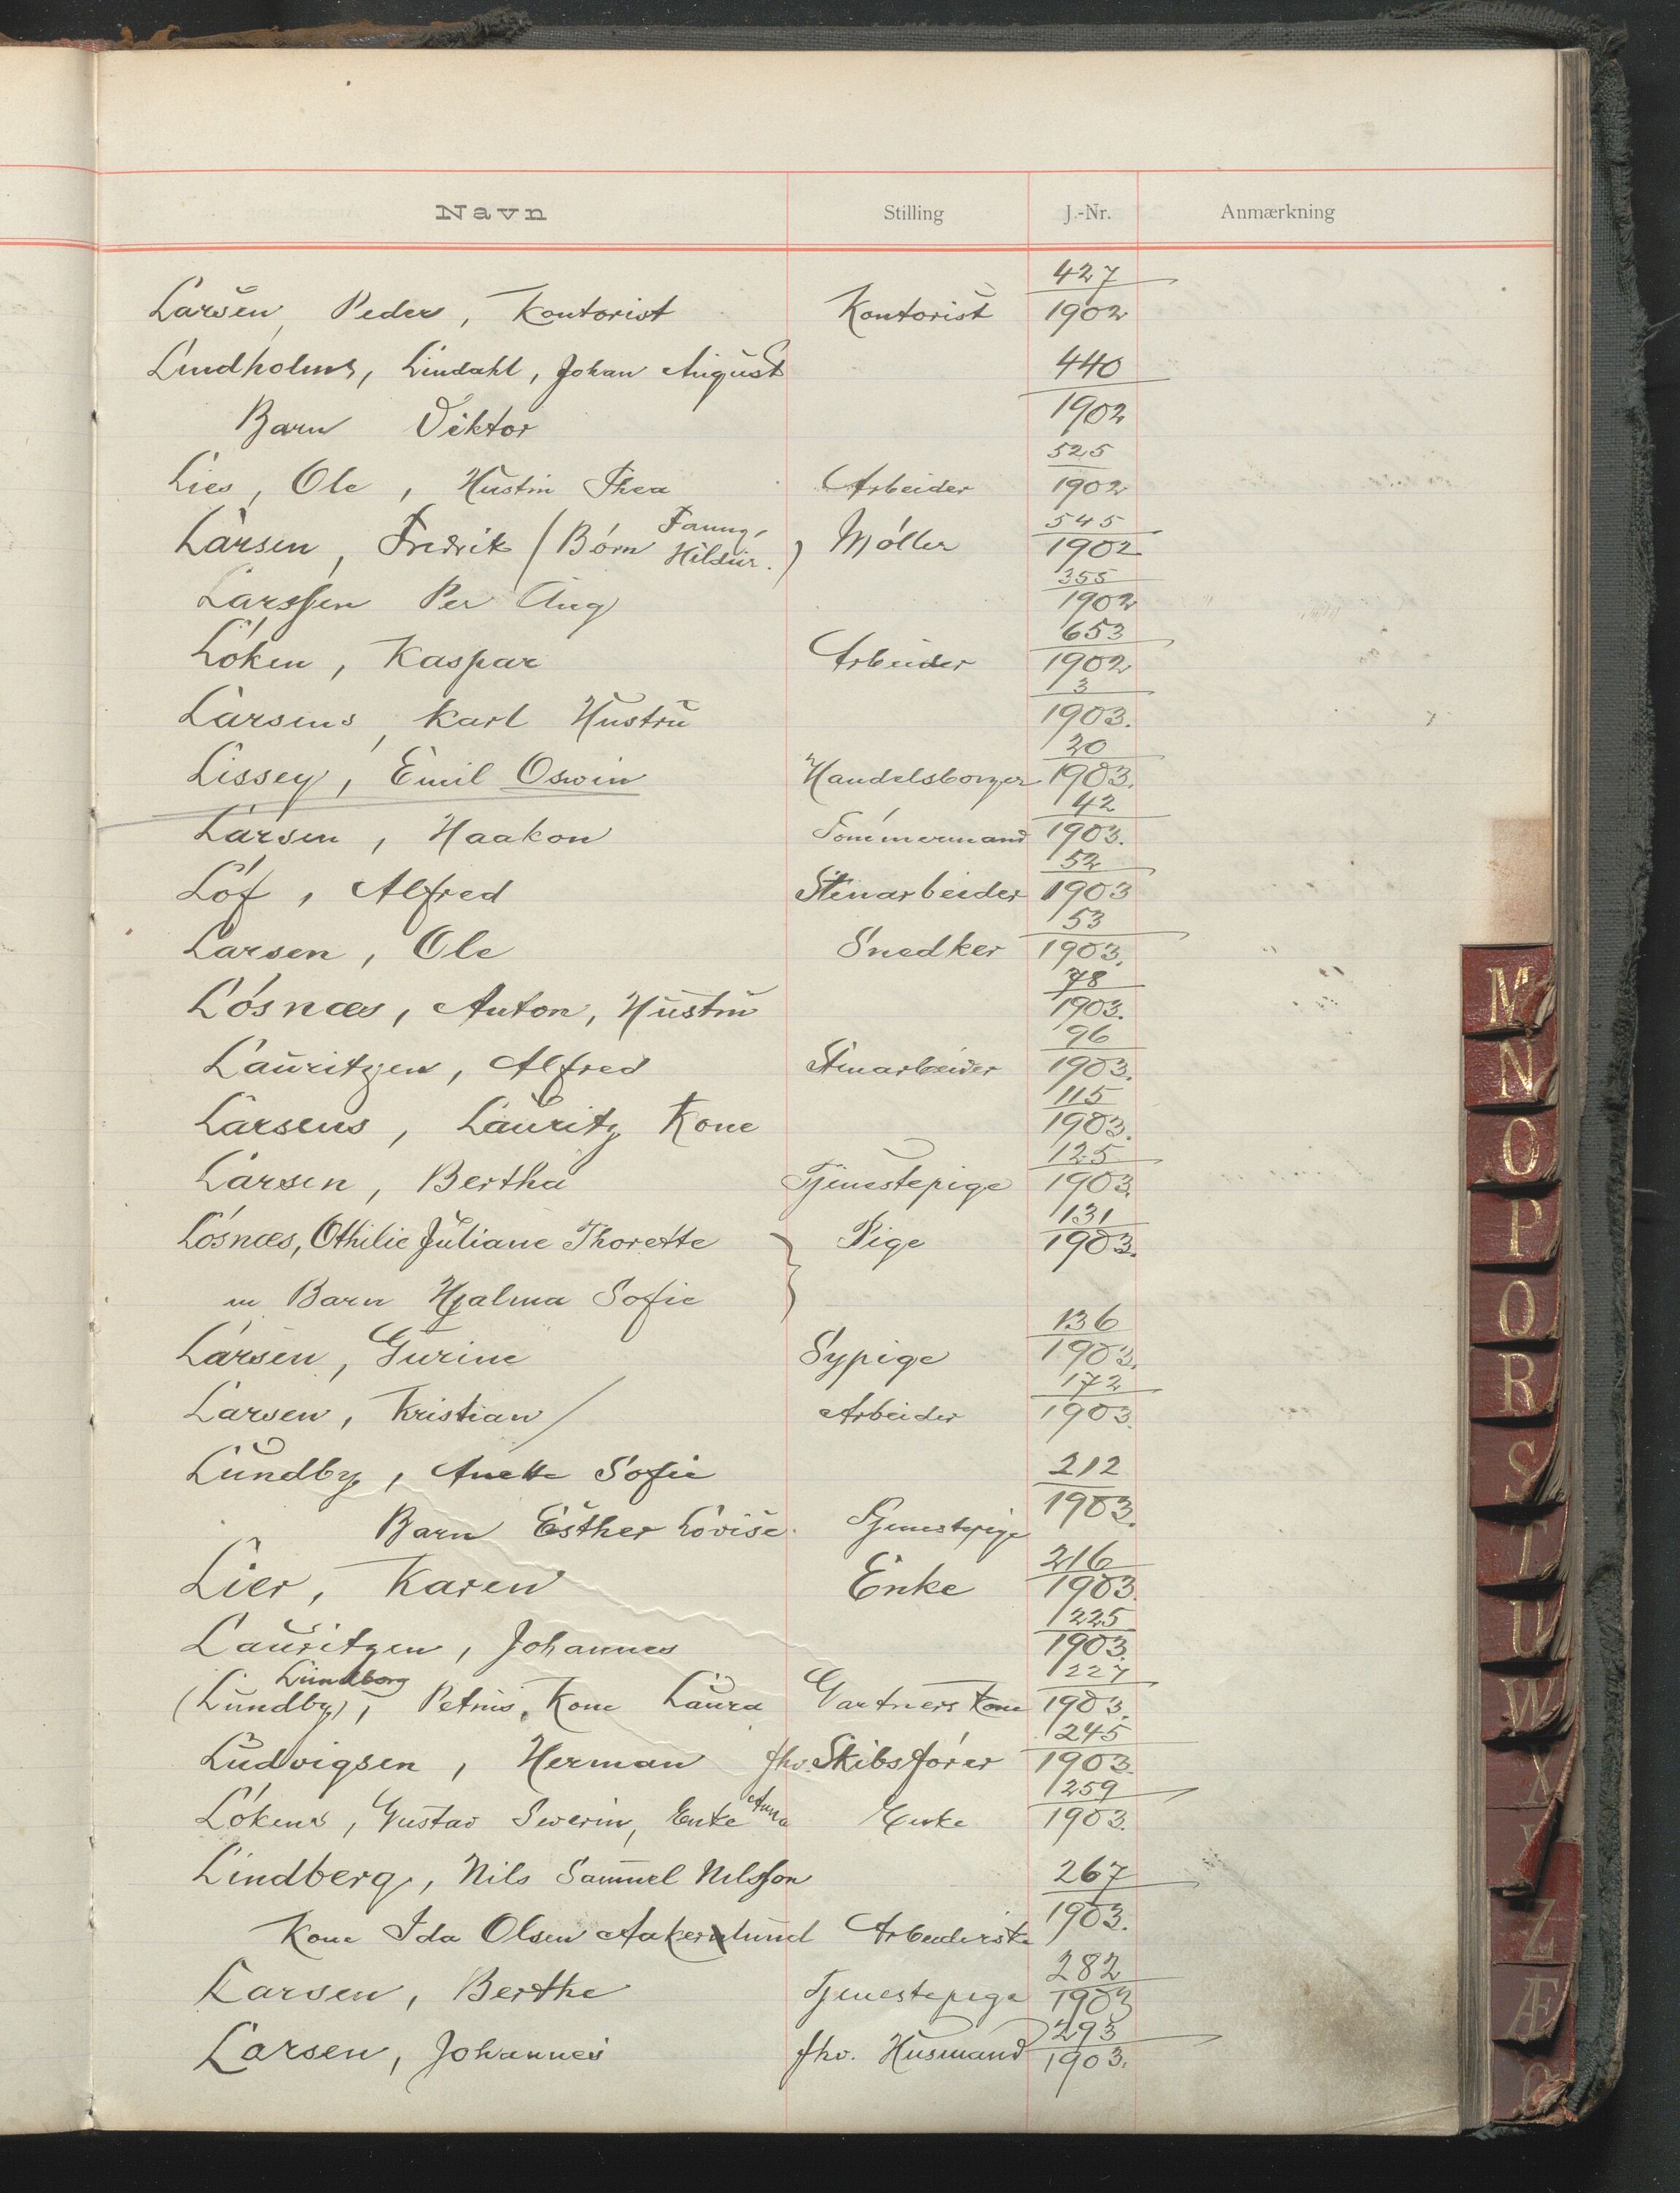 Navn Stilling J.-Nr. Anmærkning
427
Larsen, Peder, Kontorist Kontorist 1902
Lindholms, Lindahl, Johan August 440
Barn Viktor 1902
525
Lies, Ole, Hustru Thea Arbeider 1902
Fanny, 545
Larsen, Fredrik (Børn Hildur.) Møller 1902
355
Larssen Per Aug 1902
653
Løken, Kaspar Arbeider 1902
3
Larsens, Karl Hustru 1903.
20
Lissey, Emil Oswin Handelsborger 1903.
42
Larsen, Haakon Tømmermand 1903.
52
Löf, Alfred Stenarbeider 1903
53
Larsen, Ole Snedker 1903.
78
Løsnæs, Anton, Hustru 1903.
96
Lauritzen, Alfred Stenarbeider 1903.
115
Larsens, Lauritz Kone 1903.
125
Larsen, Bertha Tjenestepige 1903.
131
Løsnæs, Othilie Juliane Thorette Pige 1903.
m Barn Hjalma Sofie
136
Larsen, Gurine Sypige 1903.
172
Larsen, Kristian / Arbeider 1903.
Lundby, Anette Sofie 212
Barn Esther Lovise. Tjenestepige 1903.
216
Lier, Karen Enke 1903.
225
Lauritzen, Johannes 1903.
Lundborg 227
(Lundby), Petrus, Kone Laura Gartners Kone 1903.
245
Ludvigsen, Herman fhv. Skibsfører 1903.
259
Løkens, Gustav Severin, Enke Anna Enke 1903.
Lindberg, Nils Samuel Nilsson 267
Kone Ida Olsen Aakerlund Arbeiderske 1903.
282
Larsen, Berthe Tjenestepige 1903
293
Larsen, Johannes fhv. Husmand 1903.
M
N
O
P
Q
R
S
T
U
W
X
Y
Z
Æ
Ø